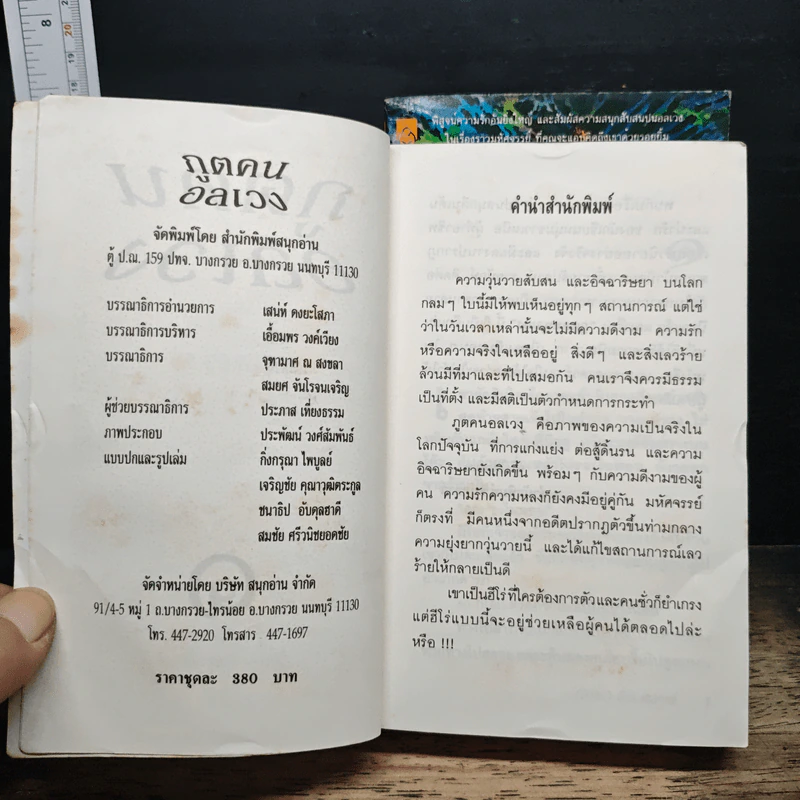 8
20
19
18
พิสูจน์ความรักอันยิ่งใหญ่ และสัมผัสความสนุกสับสนปนอลเวง
ในเรื่องราวมหัศจรรย์ ที่คุณจะแอบคิดถึงเขาด้วยรอยยิ้ม
ภูตคน
อลเวง
จัดพิมพ์โดย สำนักพิมพ์สนุกอ่าน
ตู้ ป.ณ. 159 ปทจ. บางกรวย อ.บางกรวย นนทบุรี 11130
บรรณาธิการอำนวยการ เสน่ห์ ดงยะโสภา
บรรณาธิการบริหาร เอื้อมพร วงค์เวียง
บรรณาธิการ จุฑามาศ ณ สงขลา
สมยศ จันโรจนเจริญ
ผู้ช่วยบรรณาธิการ ประภาส เที่ยงธรรม
ภาพประกอบ ประพัฒน์ วงศ์สัมพันธ์
แบบปกและรูปเล่ม กิ่งกรุณา ไพบูลย์
เจริญชัย คุณาวุฒิตระกูล
ชนาธิป อับดุลฮาดี
สมชัย ศรีวนิชยอดชัย
จัดจำหน่ายโดย บริษัท สนุกอ่าน จำกัด
91/4-5 หมู่ 1 ถ.บางกรวย-ไทรน้อย อ.บางกรวย นนทบุรี 11130
โทร. 447-2920 โทรสาร 447-1697
ราคาชุดละ 380 บาท
คำนำสำนักพิมพ์
ความวุ่นวายสับสน และอิจฉาริษยา บนโลก
กลมๆ ใบนี้มีให้พบเห็นอยู่ทุกๆ สถานการณ์ แต่ใช่
ว่าในวันเวลาเหล่านั้นจะไม่มีความดีงาม ความรัก
หรือความจริงใจเหลืออยู่ สิ่งดีๆ และสิ่งเลวร้าย
ล้วนมีที่มาและที่ไปเสมอกัน คนเราจึงควรมีธรรม
เป็นที่ตั้ง และมีสติเป็นตัวกำหนดการกระทำ
ภูตคนอลเวง คือภาพของความเป็นจริงใน
โลกปัจจุบัน ที่การแก่งแย่ง ต่อสู้ดิ้นรน และความ
อิจฉาริษยายังเกิดขึ้น พร้อมๆ กับความดีงามของผู้
คน ความรักความหลงก็ยังคงมีอยู่คู่กัน มหัศจรรย์
ก็ตรงที่ มีคนหนึ่งจากอดีตปรากฏตัวขึ้นท่ามกลาง
ความยุ่งยากวุ่นวายนี้ และได้แก้ไขสถานการณ์เลว
ร้ายให้กลายเป็นดี
เขาเป็นฮีโร่ที่ใครต้องการตัวและคนชั่วก็ยำเกรง
แต่ฮีโร่แบบนี้จะอยู่ช่วยเหลือผู้คนได้ตลอดไปล่ะ
หรือ !!!